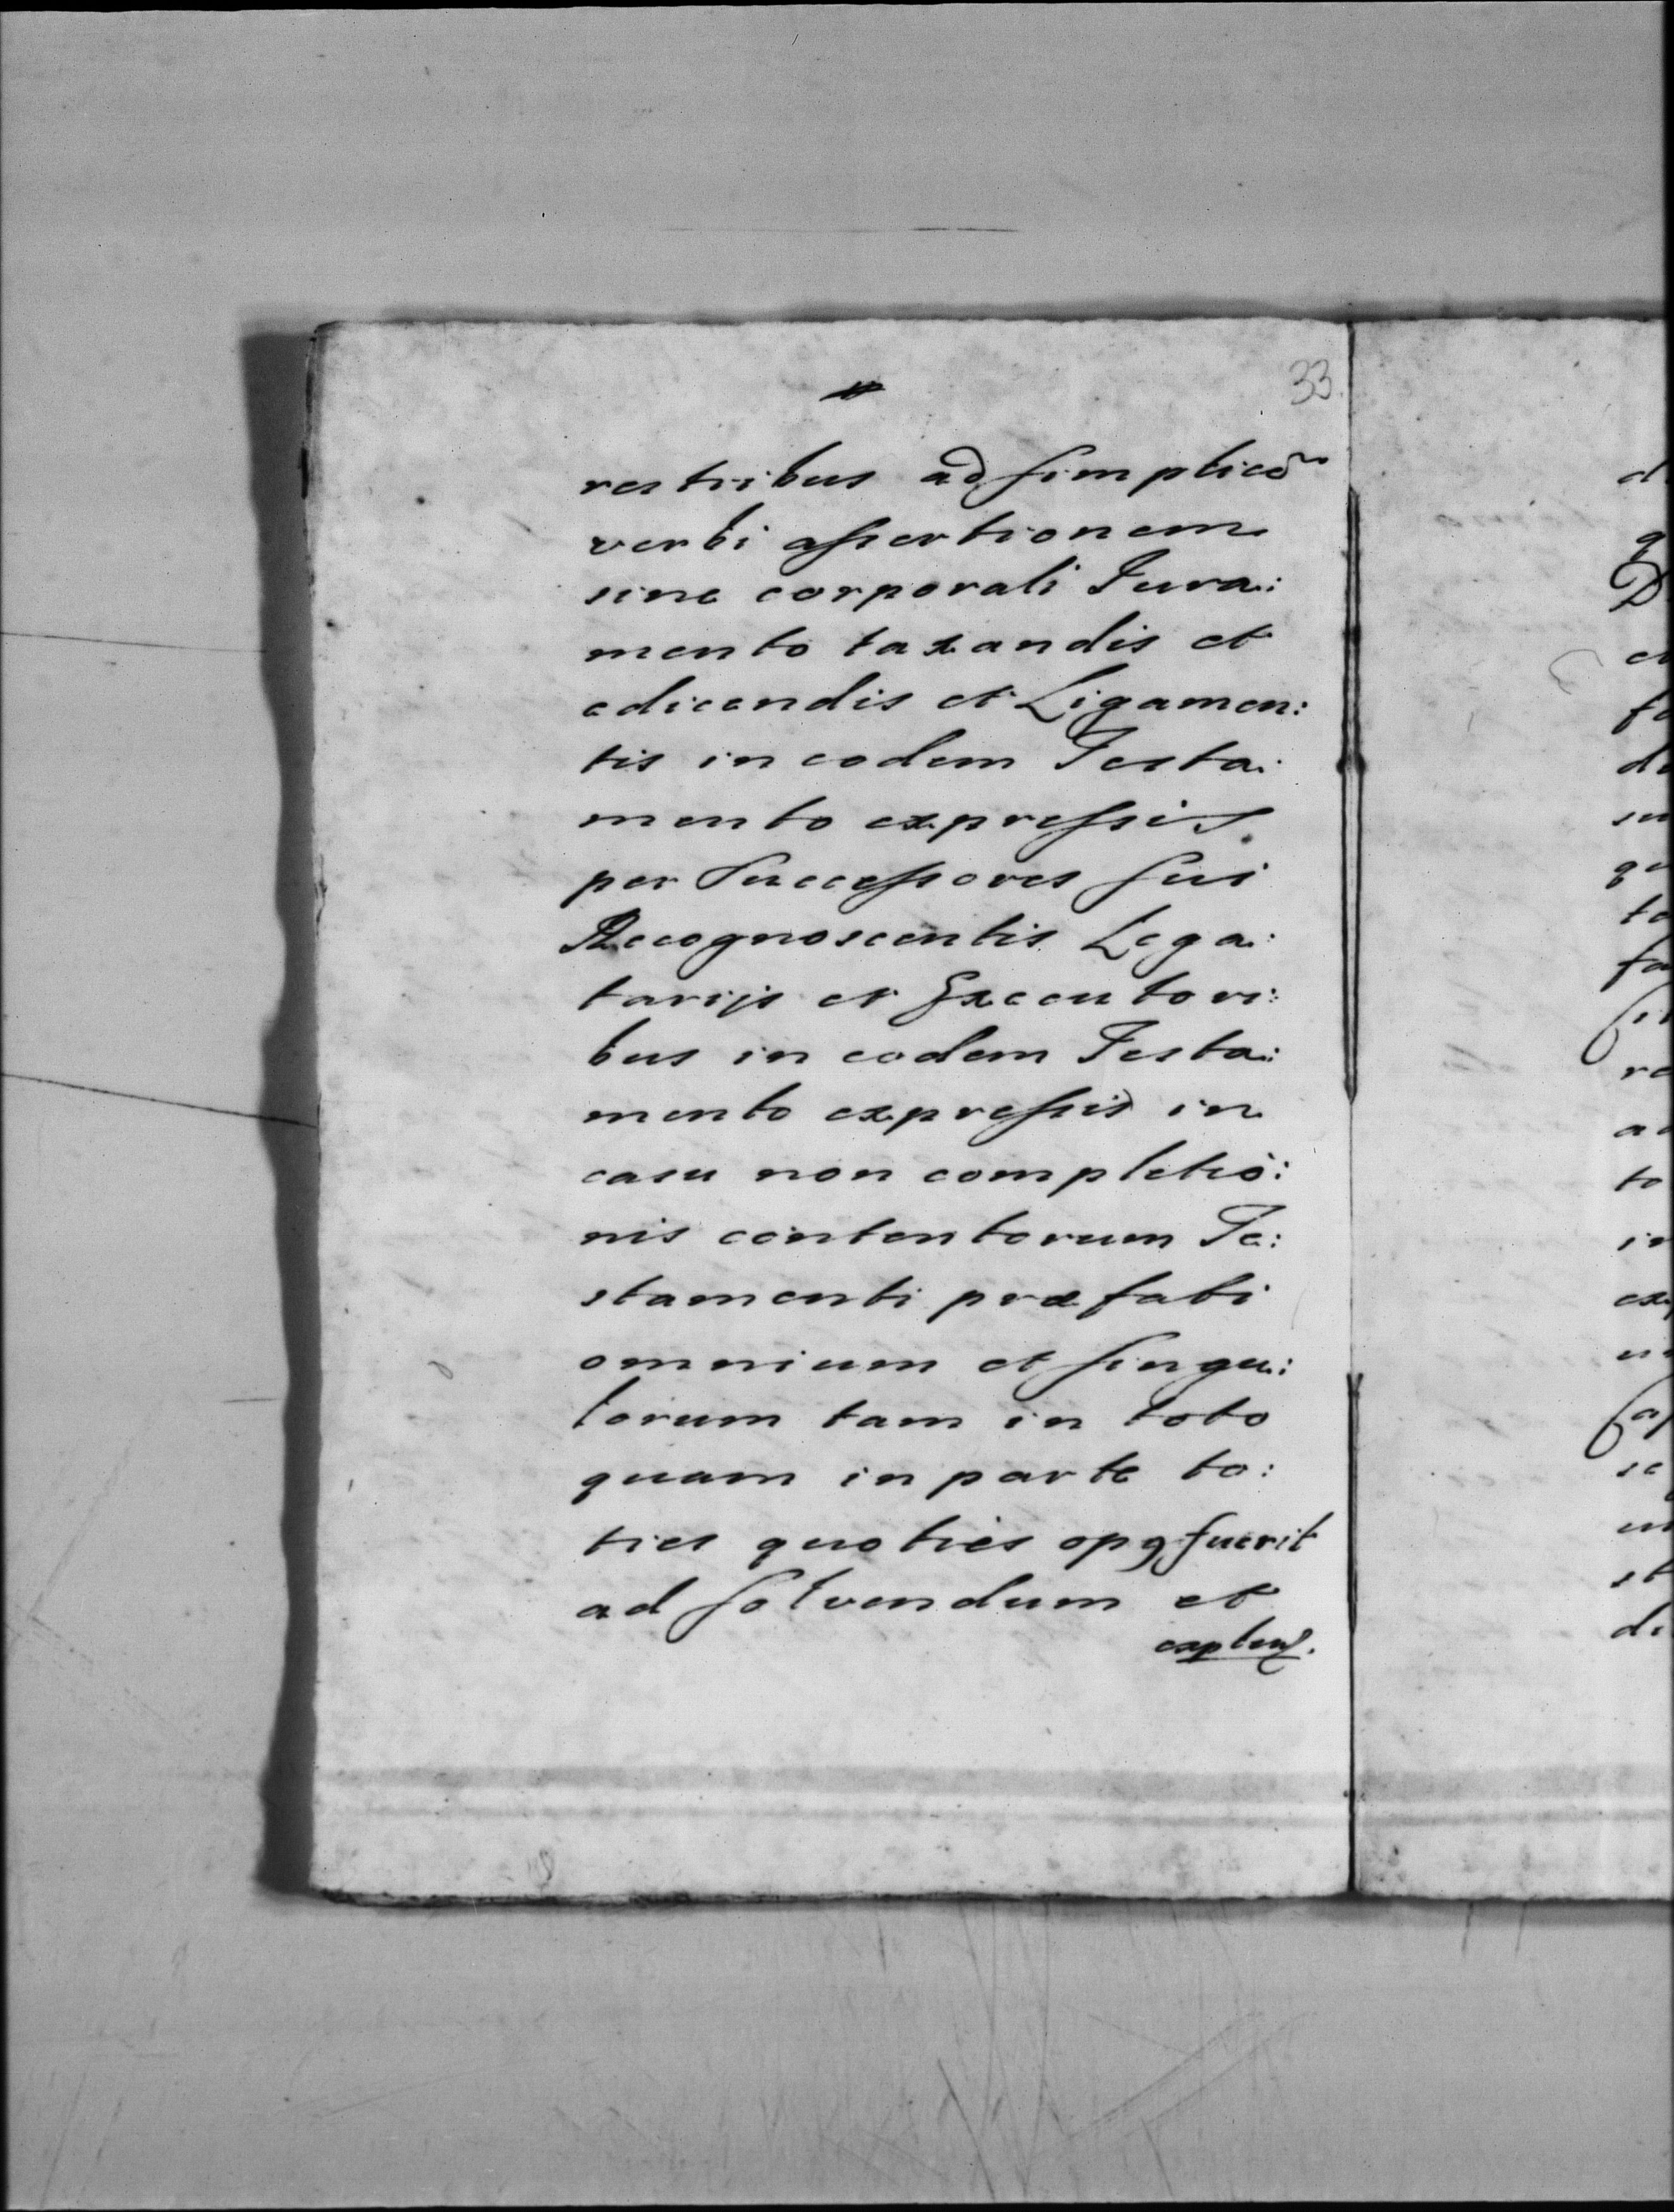 33.
restribus ad simplicē
verbi assertionem
sine corporali Jura:
mento taxandis et
edicendis et Ligamen:
tis in eodem Testa:
mento expressis
per Successores sui
Recognoscentis Lega:
tarijs et Executori:
bus in eodem Testa:
mento expressis in
casu non completio:
nis contentorum Te:
stamenti præfati
omnium et singu:
lorum tam in toto
quam in parte to:
ties quoties opq fuerit
ad solvendum et